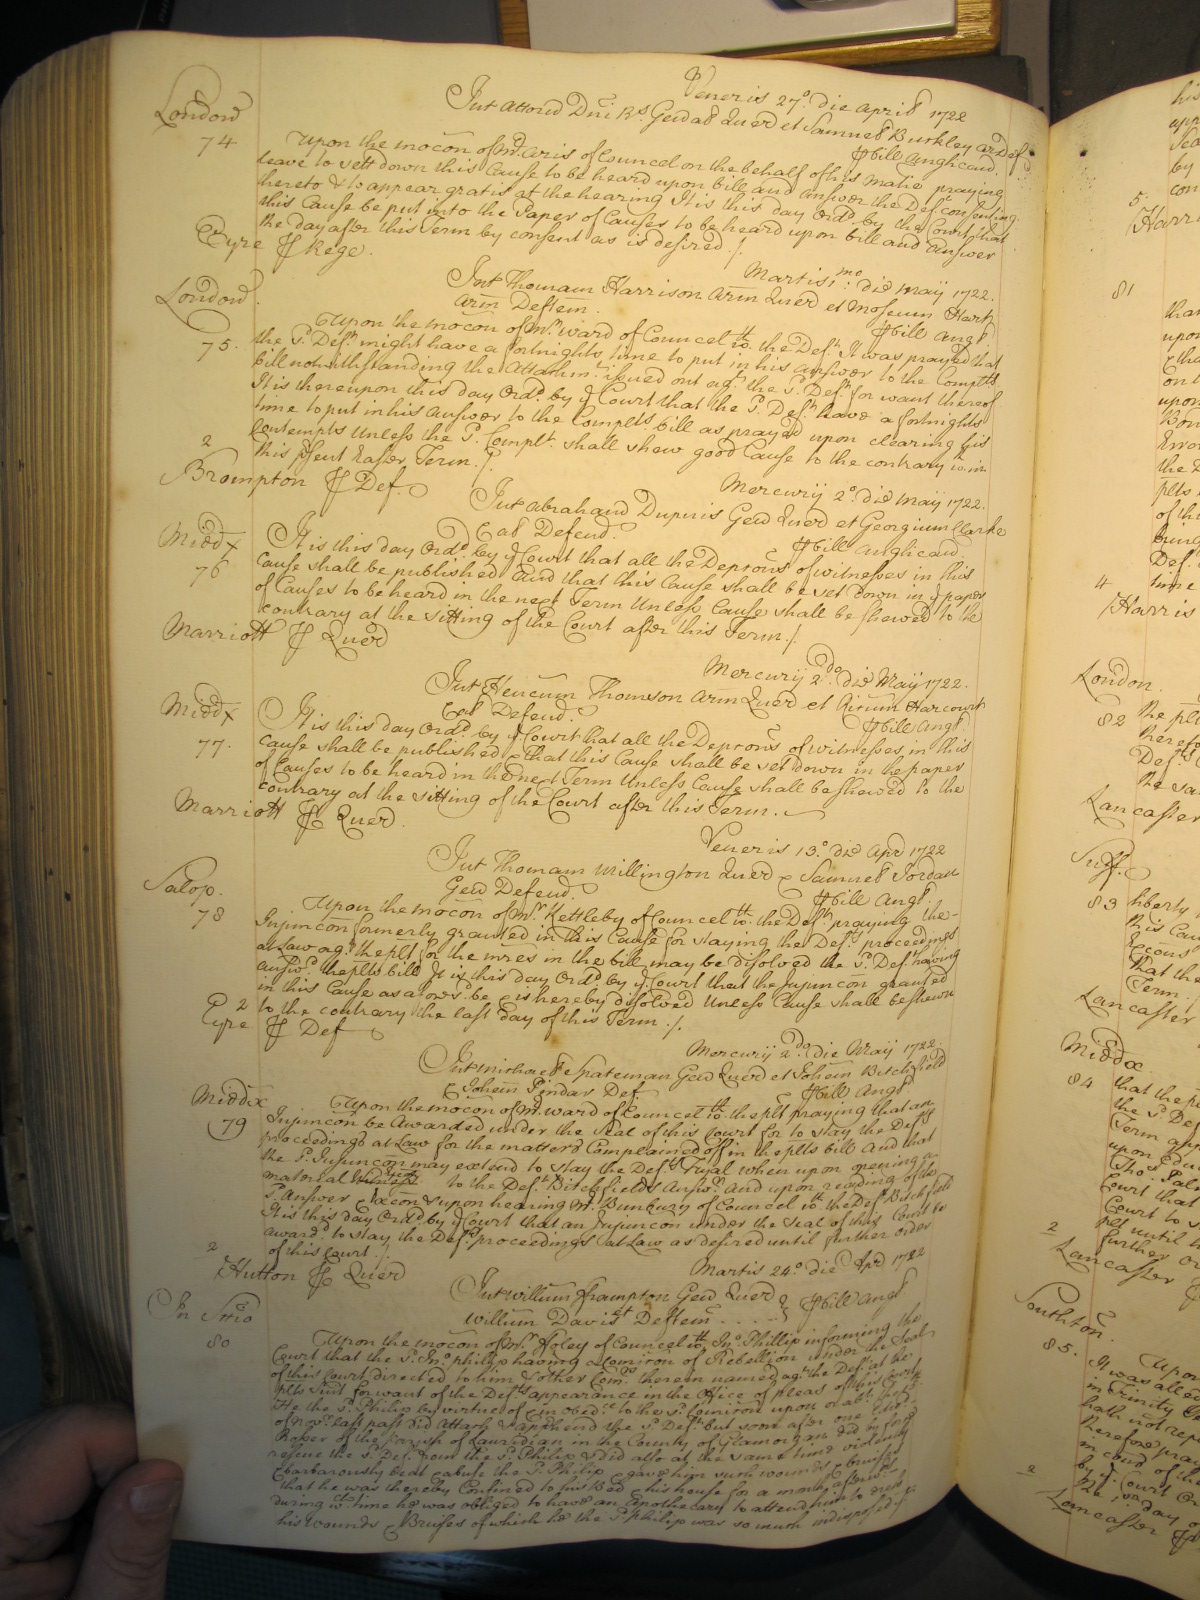 London
Veneris 27o. die Aprilis 1722
Int Attorn Dni Rs. Genalem Quer et Samuel Burkley ar Def
74
p bill Anglicand.
Upon the mocon of Mr. Aris of Councel on the behalf of his Matie praying
leave to sett down this Cause to be heard upon bill and answer the Deft. consenting
hereto & to appear gratis at the hearing It is this day Ordd. by the Court that
this Cause be put into the Paper of Causes to be heard upon bill and Answer
the day after this Term by consent as is desired ./.
Eyre p Rege.
Martis 1mo: die May 1722.
London.
Int Thomam Harrison Arm Quer et Moseum Hart
Arm Deftem.
p bill Angl.
75.
Upon the mocon of Mr. Ward of Councel wth. the Deft. It was prayed that
the sd. Deft. might have a fortnights time to put in his answer to the Complts
bill notwithstanding the Attachmt. issued out agt. the sd. Deft. for want thereof
It is thereupon this day Ordd. by ye Court that the sd. Deft. have a fortnights
time to put in his Answer to the Complts. bill as prayed upon clearing his
Contempts Unless the sd. Complt. shall shew good Cause to the contrary within
this psent Easter Term ./.
2
Brompton p Def.
Mercurij 2o. die May 1722.
Int Abraham Dupuis Gen Quer et Georgium Clarke
Cal Defend.
Middx
p bill Anglicand.
76
It is this day Ordd. by ye Court that all the Depcons of witnesses in this
Cause shall be published And that this Cause shall be set down in ye paper
of Causes to be heard in the next Term Unless Cause shall be shewed to the
contrary at the sitting of the Court after this Term ./.
Marriott p Quer
Mercurij 2do. die May 1722.
Int Henricum Thomson Arm Quer et Harcourt
Middx
Cal Defend.
p bill Angl.
77.
It is this day Ordd. by ye Court that all the Depcons of witnesses in this
Cause shall be published & that this Cause shall be set down in the paper
of Causes to be heard in the next Term Unless Cause shall be shewed to the
contrary at the sitting of the Court after this Term.
Marriott p Quer.
Veneris 13o. die Apr 1722
Int Thomam Willington Quer & Samuel Jordan
Salop.
Gen Defend.
p bill Angl.
78
Upon the mocon of Mr. Kettleby of Councel wth. the Deft. praying the
Injuncon formerly granted in this Cause for staying the Defts. proceedings
at Law agt. the plt for the mres in the bill may be disolved the sd. Deft. having
answd. the plts bill It is this day Ordd by ye Court that the Injuncon granted
in this Cause as aforesd. be & is hereby disolved Unless Cause shall be shewn
to the contrary the last day of this Term ./.
2
Eyre p Def
Mercurij 2do. die May 1722
Int Michael Spateman Gen Quer et Johem Bitchfield
& Johem Pindar Def
p bill Angl
Middx
79
Upon the mocon of Mr. Ward of Councel wth. the plt praying that an
Injuncon be Awarded under the Seal of this Court for to stay the Defts
proceedings at Law for the matters Complained off in the plts bill And that
the sd. Injuncon may extend to stay the Defts. Tryal when upon opening a
material to the Deft. Bitchfields Answr. And upon reading of the
sd. Answer & upon hearing Mr. Bunbury of Councel wth. the Deft Bitchfield
It is this day Ordd by ye Court that an Injuncon under the Seal of this Court be
awardd. to stay the Defts. proceedings at Law as desired until further order
of this Court ./.
2
Hutton p Quer
Martis 24o. die Apr 1722
Int Willum Frampton Gen Quer
Willum Davis Deftem
p bill Angl.
In Sccio
80
Upon the mocon of Mr. Foley of Councel wth. Jno. Phillip informing the
Court that the sd. Jno. philip having a Comicon of Rebellion under the Seal
of this Court directed to him & other Comrs. therein named agt. the Deft. at the
plts suit for want of the Defts. appearance in the Office of pleas of this Court
He the sd. Philip by virtue of & in obedce. to the sd. Comicon upon or abt. the
of Novr. last past did Attach & apprehend the sd. Deft. but soon after one
of the Parish of in the County of Glamorgan did by force
rescue the sd. Def. from the sd. Philip & did also at the same time violently
& barbarously beat & abuse the sd. Philip & gave him such wounds & bruises
that he was thereby Confined to his Bed & his house for a month
during wch. time he was obliged to have an Apothecary to attend him to dress
his wounds & Bruises of which he the sd. Philip was so much indisposed yt.
5
Harri
81
4
Harris
London.
82
the plt
Lancaster
Suff.
83
liberty
this Cau
that the
Term
Lancaster
Middx
84
that the p
the sd Def
Court that
plt until
further or
2
Lancaster
Southton.
85.
Upo
It was all
in Trinity
hath not rep
by ye Court
the day of
2
Lancaster p